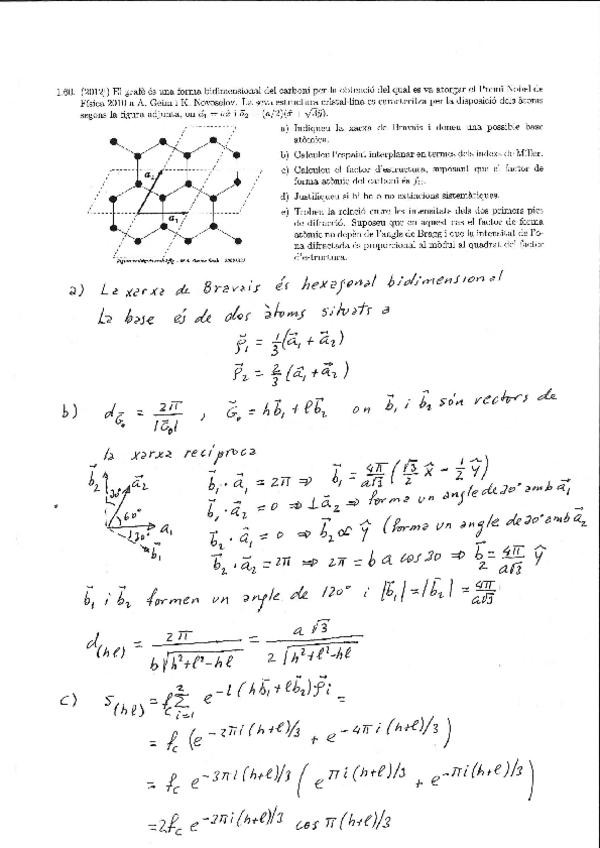 1.60. (2012J) El grafè és una forma bidimensional del carboni per la obtenció del qual es va atorgar el Premi Nobel de
Física 2010 a A. Geim i K. Novoselov. La seva estructura cristal·lina es caracteritza per la disposició dels àtoms
segons la figura adjunta, on a⃗₁ = ax̂ i a⃗₂ = (a/2)(x̂ + √3ŷ).
a) Indiqueu la xarxa de Bravais i doneu una possible base
atòmica.
b) Calculeu l'espaiat interplanar en termes dels índexs de Miller.
c) Calculeu el factor d'estructura, suposant que el factor de
forma atòmic del carboni és f_c.
d) Justifiqueu si hi ha o no extincions sistemàtiques.
e) Trobeu la relació entre les intensitats dels dos primers pics
de difracció. Suposeu que en aquest cas el factor de forma
atòmic no depèn de l'angle de Bragg i que la intensitat de l'o-
na difractada és proporcional al mòdul al quadrat del factor
d'estructura.
a₂
a₁
a) La xarxa de Bravais és hexagonal bidimensional
La base és de dos àtoms situats a
ρ⃗₁ = 1/3 (a⃗₁ + a⃗₂)
ρ⃗₂ = 2/3 (a⃗₁ + a⃗₂)
b) d_G⃗₀ = 2π/|G⃗₀| , G⃗₀ = hb⃗₁ + lb⃗₂ on b⃗₁ i b⃗₂ són vectors de
la xarxa recíproca
b⃗₂ a⃗₂ 30° 60° a₁ 30° b⃗₁
b⃗₁ · a⃗₁ = 2π ⇒ b⃗₁ = 4π/a√3 (√3/2 x̂ − 1/2 ŷ)
b⃗₁ · a⃗₂ = 0 ⇒ ⊥ a⃗₂ ⇒ forma un angle de 30° amb a⃗₁
b⃗₂ · a⃗₁ = 0 ⇒ b⃗₂ ∝ ŷ (forma un angle de 30° amb a⃗₂
b⃗₂ · a⃗₂ = 2π ⇒ 2π = b a cos 30 ⇒ b⃗₂ = 4π/a√3 ŷ
b⃗₁ i b⃗₂ formen un angle de 120° i |b⃗₁| = |b⃗₂| = 4π/a√3
d_(hl) = 2π / b√(h²+l²−hl) = a√3 / 2√(h²+l²−hl)
c) S_(hl) = f_c Σ_{i=1}^{2} e^{−i(hb⃗₁+lb⃗₂)ρ⃗i} =
= f_c (e^{−2πi(h+l)/3} + e^{−4πi(h+l)/3})
= f_c e^{−3πi(h+l)/3} (e^{πi(h+l)/3} + e^{−πi(h+l)/3})
= 2f_c e^{−3πi(h+l)/3} cos π(h+l)/3